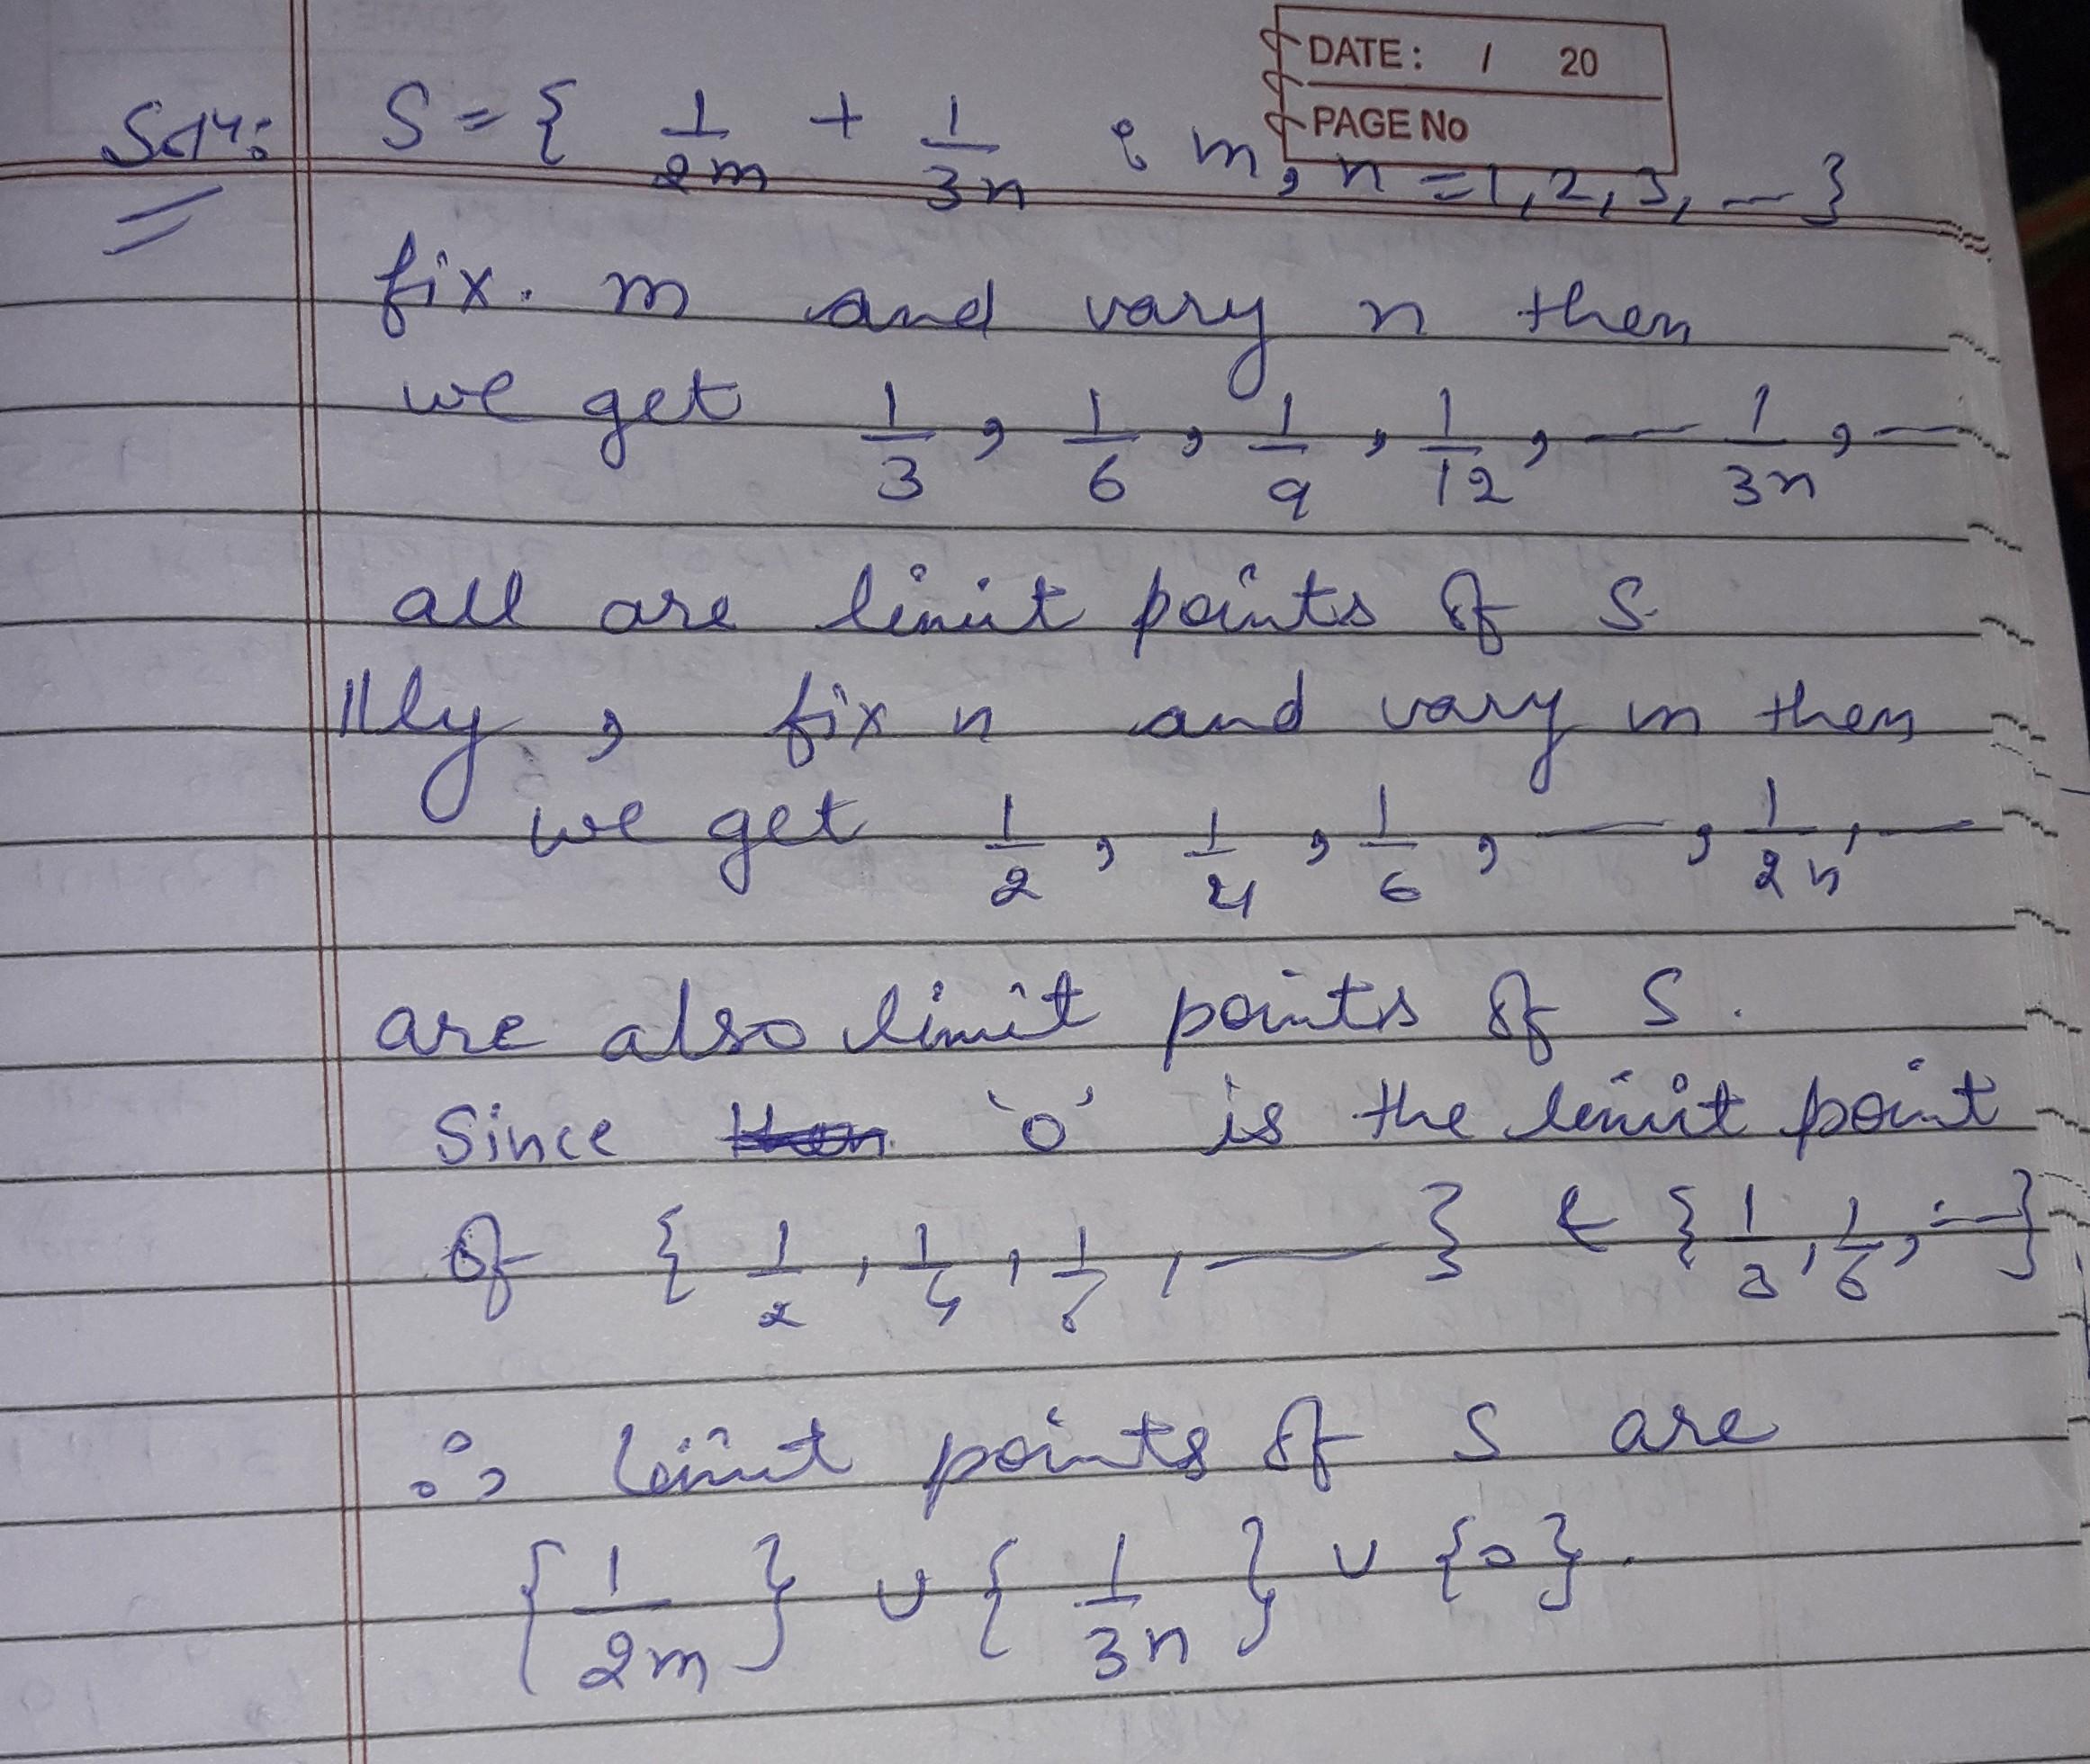 DATE: / 20
PAGE No
Solⁿ: S = { 1/2m + 1/3n ; m, n = 1, 2, 3, — }
fix. m and vary n then
we get 1/3, 1/6, 1/9, 1/12, — 1/3n, —
all are limit points of S
|||ly, fix n and vary m then
we get 1/2, 1/4, 1/6, —, 1/2n, —
are also limit points of S.
Since '0' is the limit point
of { 1/2, 1/4, 1/6, — } & { 1/3, 1/6, — }
∴ limit points of S are
{ 1/2m } ∪ { 1/3n } ∪ {0}.